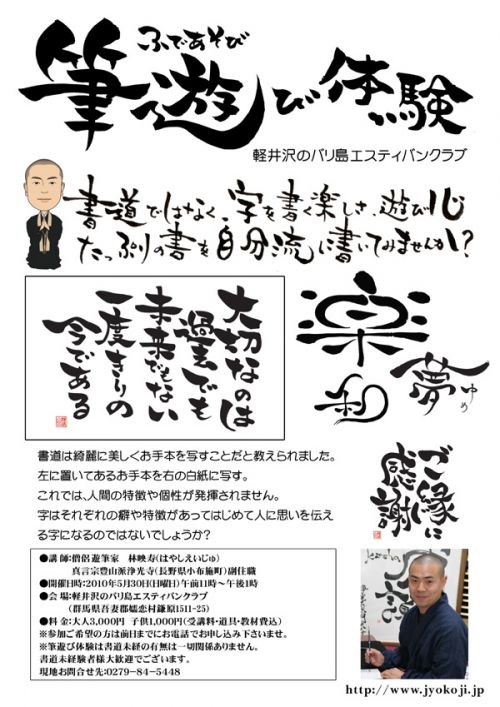 ふであそび
筆遊び体験
軽井沢のバリ島エスティバンクラブ
書道ではなく、字を書く楽しさ、遊び心
たっぷりの書を自分流に書いてみませんか!?
大切なのは
過去でも
未来でもない
一度きりの
今である
楽
和
夢
ゆめ
ご縁に
感謝
書道は綺麗に美しくお手本を写すことだと教えられました。
左に置いてあるお手本を右の白紙に写す。
これでは、人間の特徴や個性が発揮されません。
字はそれぞれの癖や特徴があってはじめて人に思いを伝え
る字になるのではないでしょうか?
●講 師:僧侶遊筆家 林映寿(はやしえいじゅ)
真言宗豊山派浄光寺(長野県小布施町)副住職
●開催日時:2010年5月30日(日曜日)午前11時〜午後1時
●会 場:軽井沢のバリ島エスティバンクラブ
(群馬県吾妻郡嬬恋村鎌原1511-25)
●料 金:大人3,000円 子供1,000円(受講料・道具・教材費込)
※参加ご希望の方は前日までにお電話でお申し込み下さいませ。
※筆遊び体験は書道未経の有無は一切関係ありません。
書道未経験者様大歓迎でございます。
現地お問合せ先:0279-84-5448
http://www.jyokoji.jp/